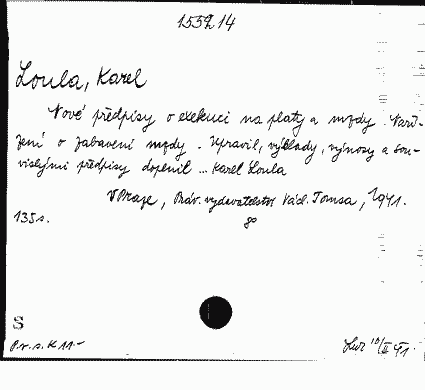 155214
Loula, Karel
Nové předpisy o exekuci na platy a mzdy. Naří-
zení o zabavení mzdy. Upravil, výklady, výnosy a sou-
vislými předpisy doplnil ... Karel Loula
V Praze, Práv. vydavatelství Václ. Tomsa, 1941.
135 s. 8°
S
Pv. s. K 11.-
10/II 41.